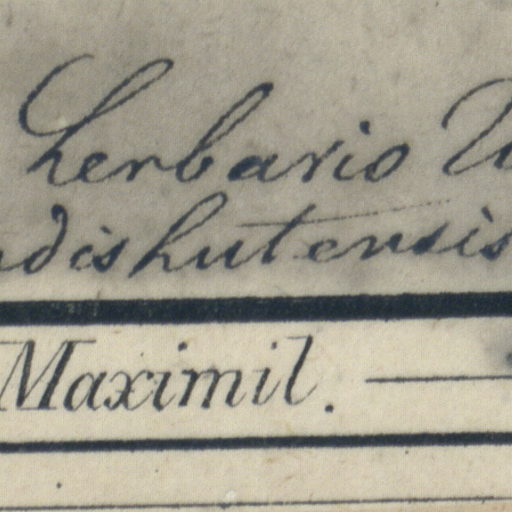 Herbario U
ndishutensis
Maximil.